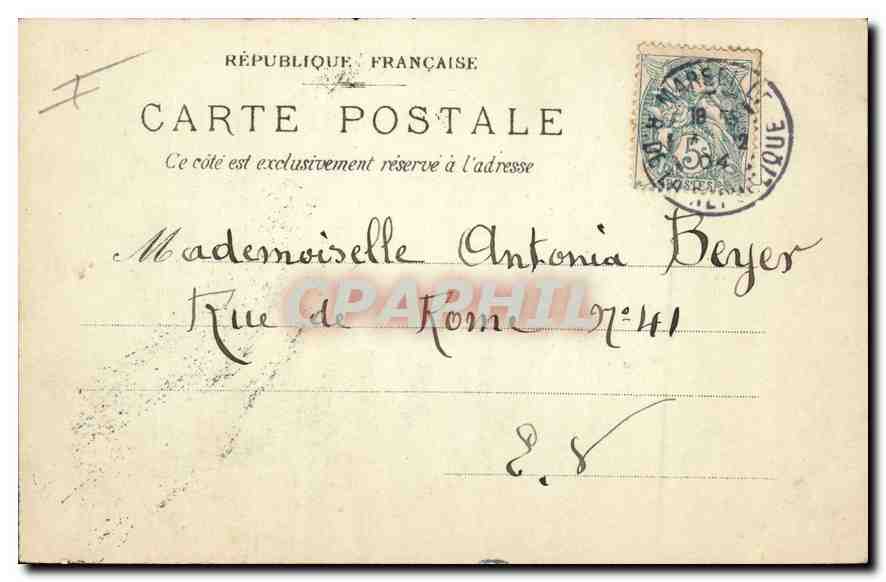 RÉPUBLIQUE FRANÇAISE
CARTE POSTALE
Ce côté est exclusivement réservé à l'adresse
Mademoiselle Antonia Beyer
Rue de Rome Nº 41
E. V
CPAPHIL
MARSEILLE
5
04